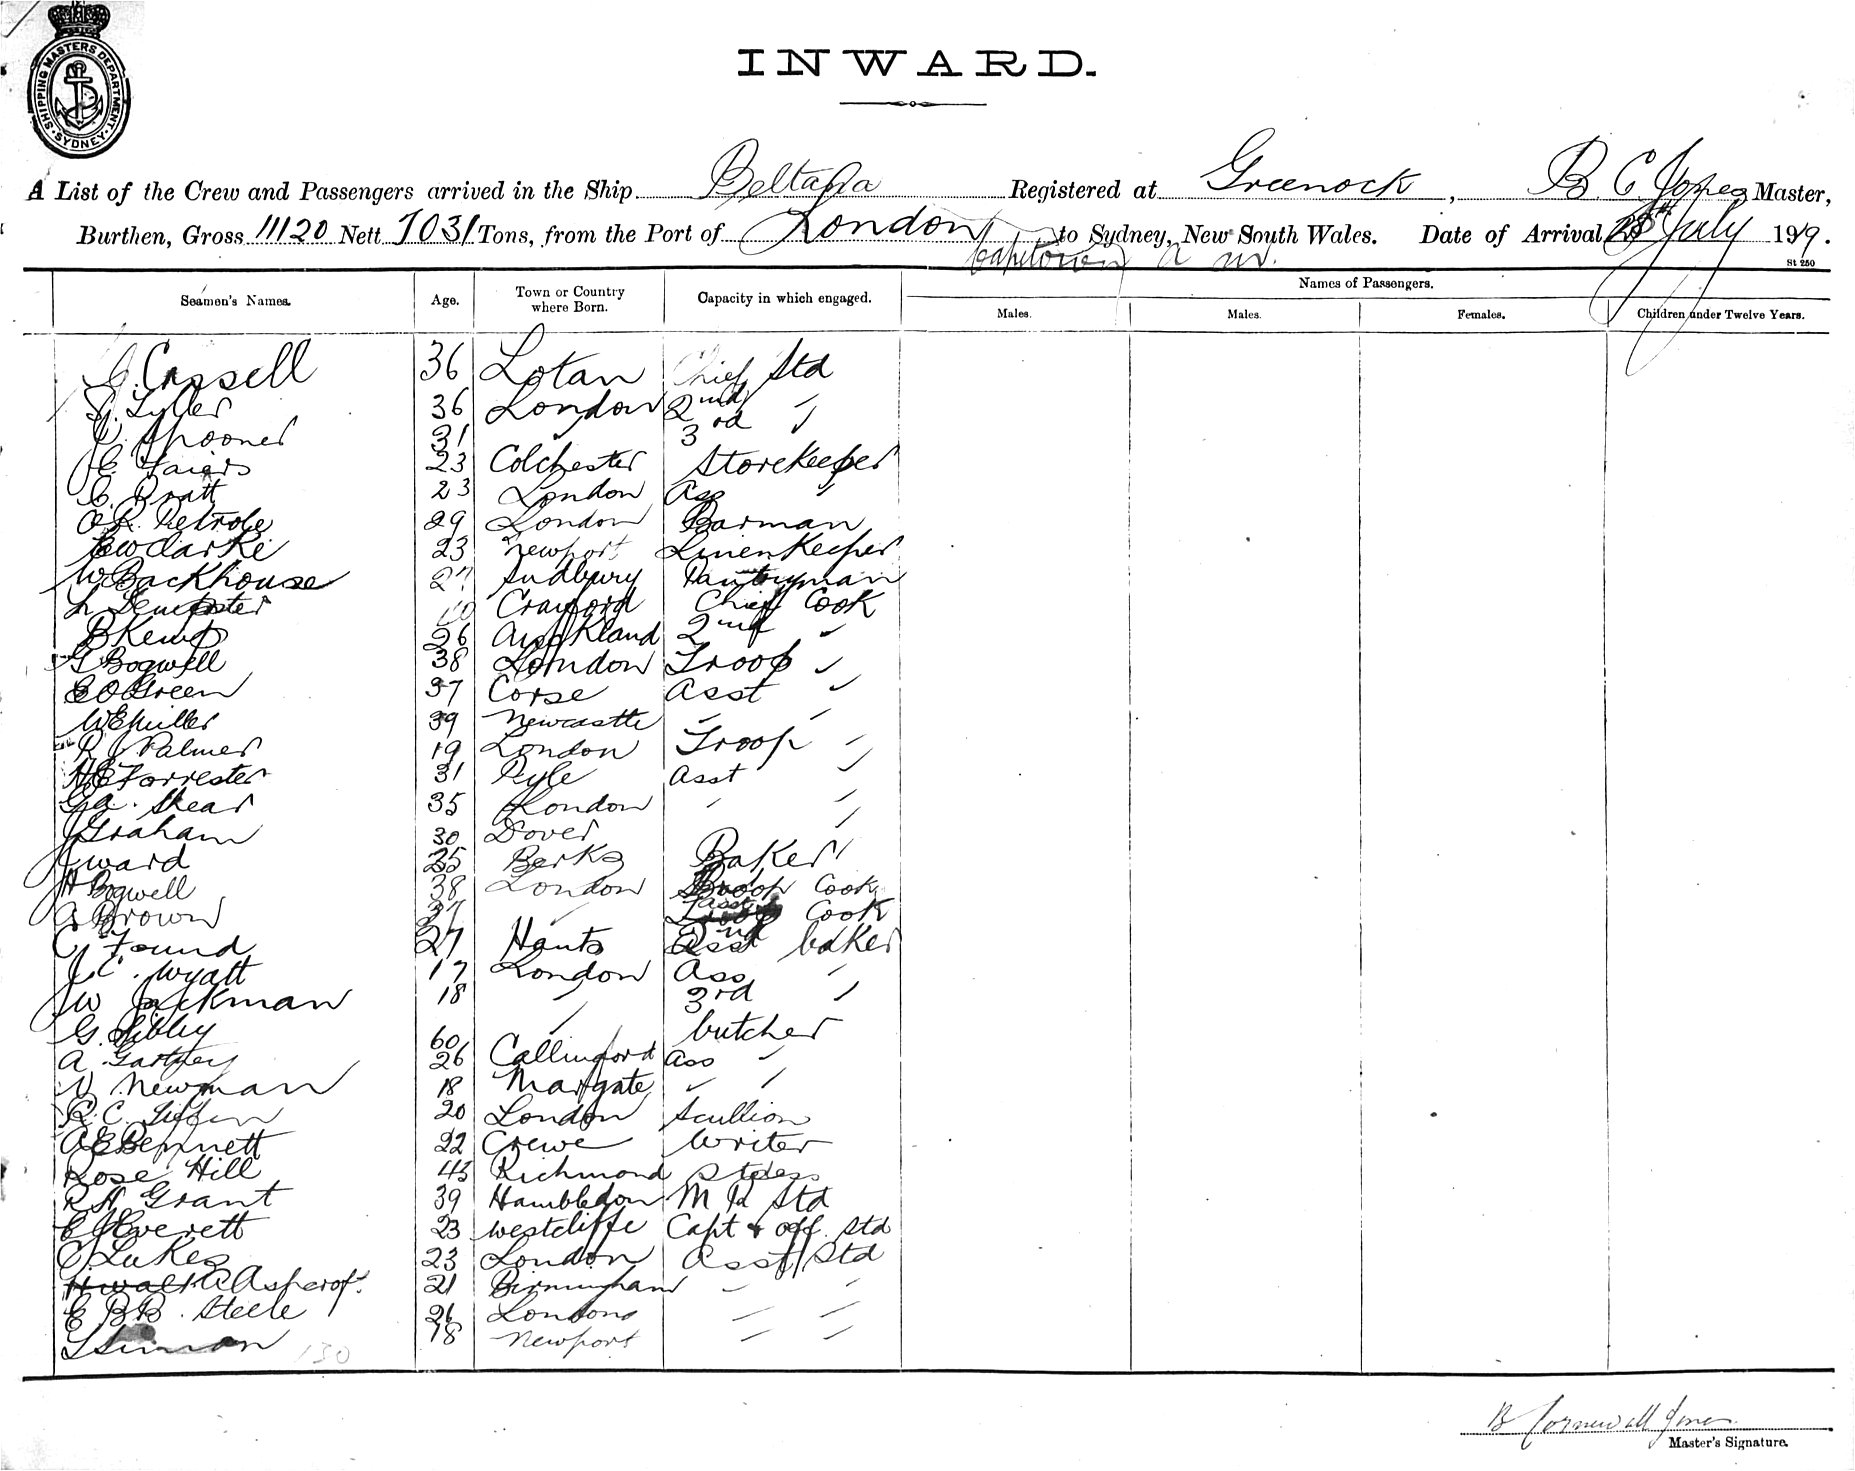 SHIPPING MASTERS DEPARTMENT. SYDNEY
INWARD.
A List of the Crew and Passengers arrived in the Ship Beltana Registered at Greenock, B C Jones Master,
Burthen, Gross 11120 Nett 7031 Tons, from the Port of London to Sydney, New South Wales. Date of Arrival July 1919.
Capetown
St 250
Seamen's Names. Age. Town or Country where Born. Capacity in which engaged. Names of Passengers.
Males. Males. Females. Children under Twelve Years.
Cassell 36 Lotan Chief Std
36 London 2nd "
Spooner 31 " 3rd "
E. Faiers 23 Colchester Storekeeper
C. Pratt 23 London Ass "
29 London Barman
EW Clarke 23 Newport Linenkeeper
W. Backhouse 27 Sudbury Pantryman
L Dempster Crayford Chief Cook
B Kemp 26 Auckland 2nd "
H Bogwell 38 London Troop "
E O Green 37 Corse Asst "
W E Miller 39 Newcastle " "
R J Palmer 19 London Troop "
H E Forrester 31 Ryle Asst "
G A. Shear 35 London " "
J Graham 30 Dover "
J Ward 35 Berks Baker
H Bogwell 38 London Troop Cook
A Brown 37 " Asst Cook
C Found 27 Hants 2nd baker
J C. Wyatt 17 London Ass "
J W Jackman 18 " 3rd "
G. Sibley 60 " butcher
A. Gartney 26 Callingford Ass "
Newman 18 Margate " "
R. C. Tiffin 20 London Scullion
A E Bennett 22 Crewe Writer
Rose Hill 43 Richmond Stdess
R H Grant 39 Hambledon M R Std
E J Everett 23 Westcliffe Capt & off. Std
C Lukes 23 London Asst Std
A Ashcrof. 21 Birmingham " "
E B B. Steele 26 London " "
18 Newport " "
130
B Cornewall Jones
Master's Signature.